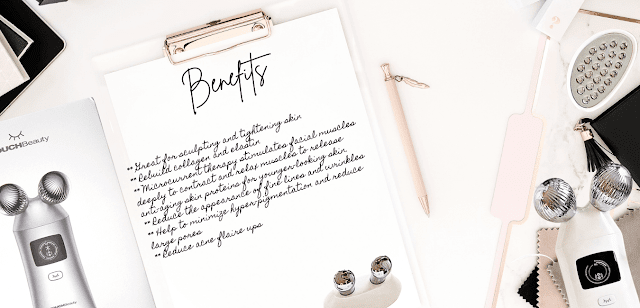 Benefits
**Great for sculpting and tightening skin
**Rebuild collagen and elastin
**Microcurrent therapy stimulates facial muscles
deeply to contract and relax muscles to release
anti-aging skin proteins for younger-looking skin
**Reduce the appearance of fine lines and wrinkles
**Help to minimize hyper-pigmentation and reduce
large pores
**Reduce acne flaire ups
OUCHBeauty